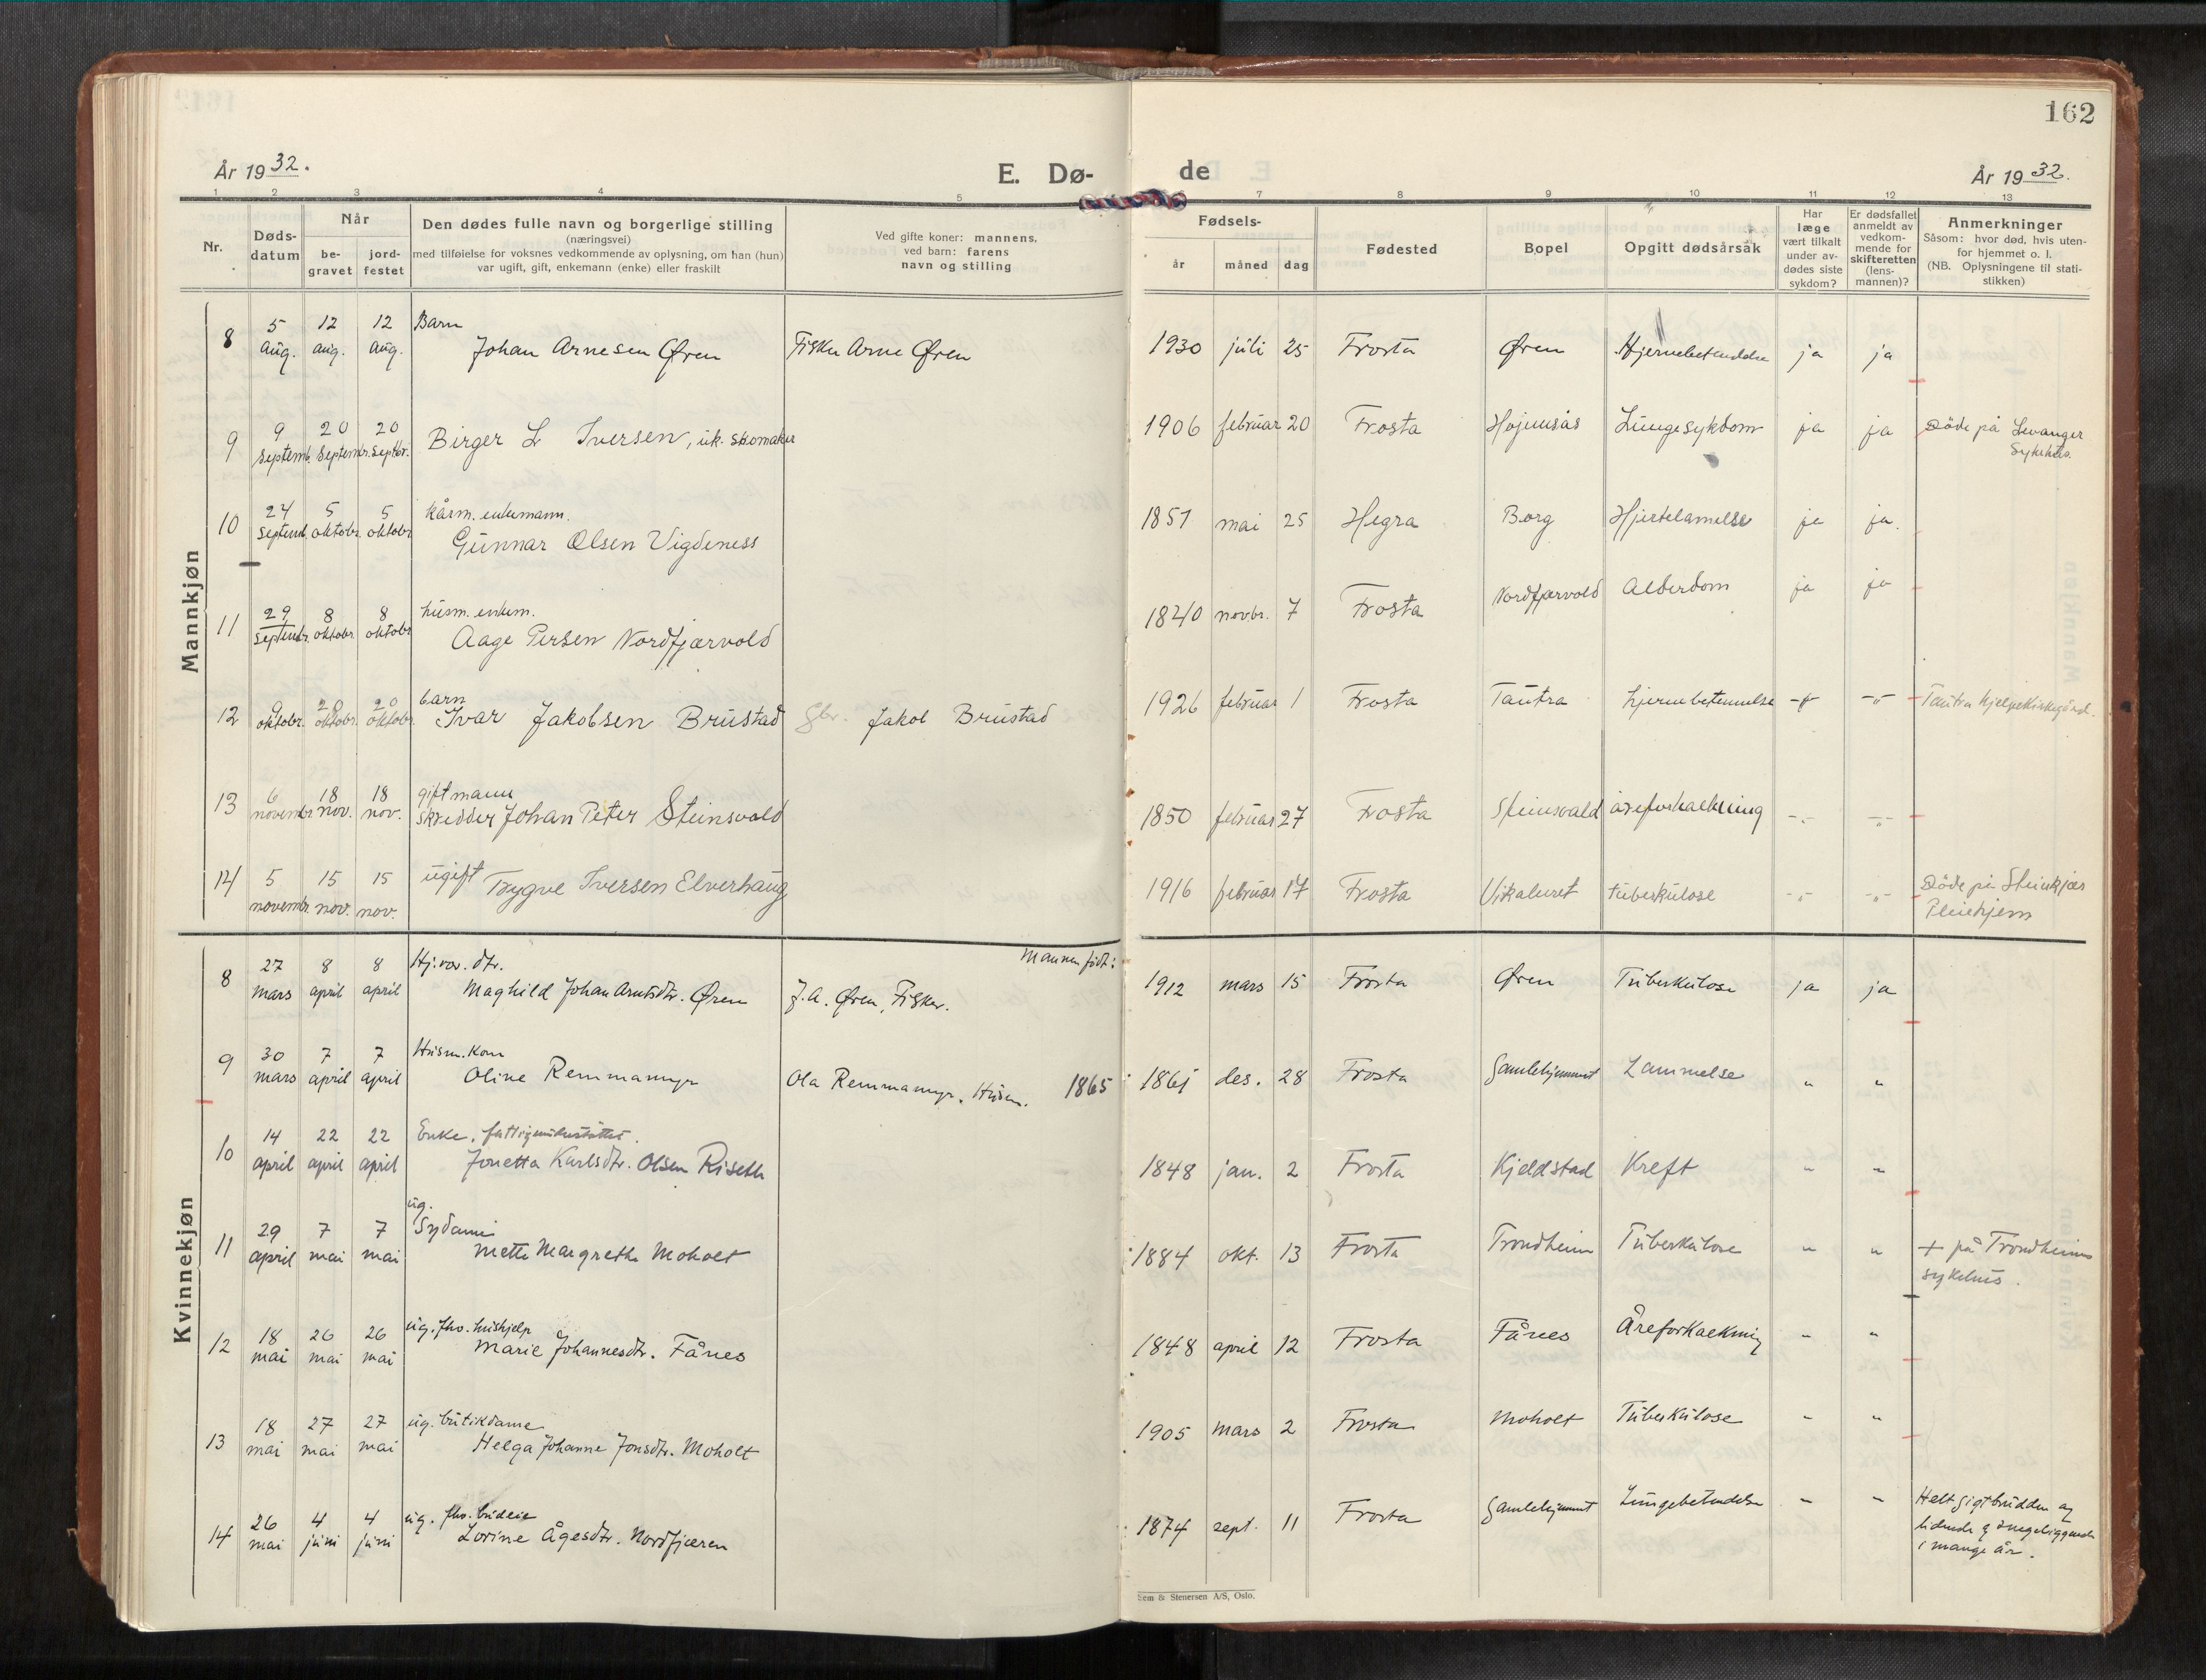 162
År 1932.
E. Dø-
de
År 1932.
1 2 3 4 5 7 8 9 10 11 12 13
Nr.
Døds-
datum
Når
be-
gravet
jord-
festet
Den dødes fulle navn og borgerlige stilling
(næringsvei)
med tilføielse for voksnes vedkommende av oplysning, om han (hun)
var ugift, gift, enkemann (enke) eller fraskilt
Ved gifte koner: mannens,
ved barn: farens
navn og stilling
Fødsels-
år måned dag
Fødested
Bopel
Opgitt dødsårsak
Har
læge
vært tilkalt
under av-
dødes siste
sykdom?
Er dødsfallet
anmeldt av
vedkom-
mende for
skifteretten
(lens-
mannen)?
Anmerkninger
Såsom: hvor død, hvis uten-
for hjemmet o. l.
(NB. Oplysningene til stati-
stikken)
Mannkjøn
8 5 aug. 12 aug. 12 aug. Barn
Johan Arnesen Øren Fisker Arne Øren 1930 juli 25 Frosta Øren Hjernebetendelse ja ja
9 9 septemb. 20 septembr. 20 septbr. Birger L Iversen, uk. skomaker 1906 februar 20 Frosta Lungesykdom ja ja Døde på Levanger
Sykehus.
10 24 septemb. 5 oktobr. 5 oktobr. kårm. enkemann.
Gunnar Olsen Vigdeness 1851 mai 25 Hegra Borg Hjertelamelse ja ja.
11 29 septembr. 8 oktobr. 8 oktobr. husm. enkem.
Aage Persen Nordfjærvold 1840 novbr. 7 Frosta Nordfjærvold Alderdom ja ja
12 9 oktobr. 20 oktobr. 20 oktobr. barn
Ivar Jakobsen Brustad Gbr. Jakob Brustad 1926 februar 1 Frosta Tautra hjernebetennelse -"- -"- Tautra hjelpekirkegård.
13 6 novembr. 18 nov. 18 nov. gift mann
skredder Johan Peter Steinsvold 1850 februar 27 Frosta Steinsvald åreforkalkning -"- -"-
14 5 novembr. 15 nov. 15 nov. ugift Trygve Iversen Elverhaug 1916 februar 17 Frosta Vikaluret tuberkulose -"- -"- Døde på Steinkjær
Pleiehjem
Kvinnekjøn
Mannen født:
8 27 mars 8 april 8 april Hj.vær. dtr.
Maghild Johan Arntsdtr. Øren J. A. Øren, Fisker. 1912 mars 15 Frosta Øren Tuberkulose ja ja
9 30 mars 7 april 7 april Husm. kone
Oline Remmamyr Ola Remmamyr. Husm. 1865 1861 des. 28 Frosta Gamlehjemmet Lammelse " "
10 14 april 22 april 22 april Enke, fattigunderstøttet.
Jonetta Karlsdtr. Olsen Riseth 1848 jan. 2 Frosta Kjeldstad Kreft " "
11 29 april 7 mai 7 mai ug.
Sydame
Mette Margrethe Moholt 1884 okt. 13 Frosta Trondheim Tuberkulose " " + på Trondheims
sykehus.
12 18 mai 26 mai 26 mai ug. fhv. hushjelp
Marie Johannesdtr. Fånes 1848 april 12 Frosta Fånes Åreforkalkning " "
13 18 mai 27 mai 27 mai ug. butikdame
Helga Johanne Jonsdtr. Moholt 1905 mars 2 Frosta Moholt Tuberkulose " "
14 26 mai 4 juni 4 juni ug. fhv. budeie
Lorine Ågesdtr. Nordfjæren 1874 sept. 11 Frosta Gamlehjemmet Lungebetendelse " " Helt gigtbrudden og
lidende & sengeliggende
i mange år.
Sem & Stenersen A/S, Oslo.